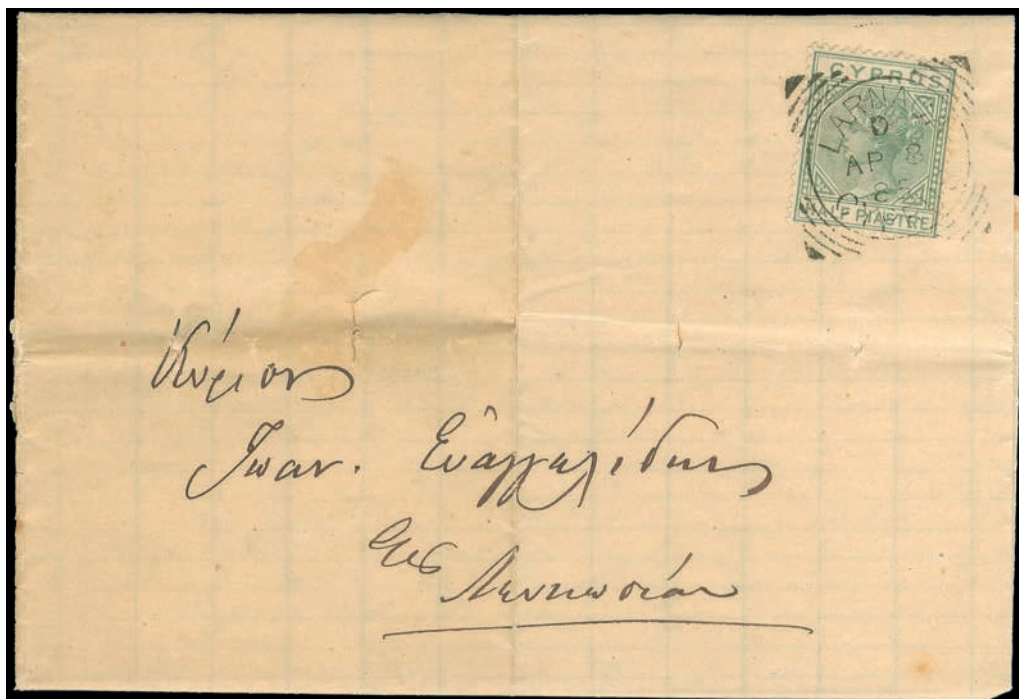 CYPRUS
LARNA
D
AP 8
HALF PIASTRE
Κύριον
Ἰωαν. Εὐαγγελίδην
εἰς
Λευκωσίαν